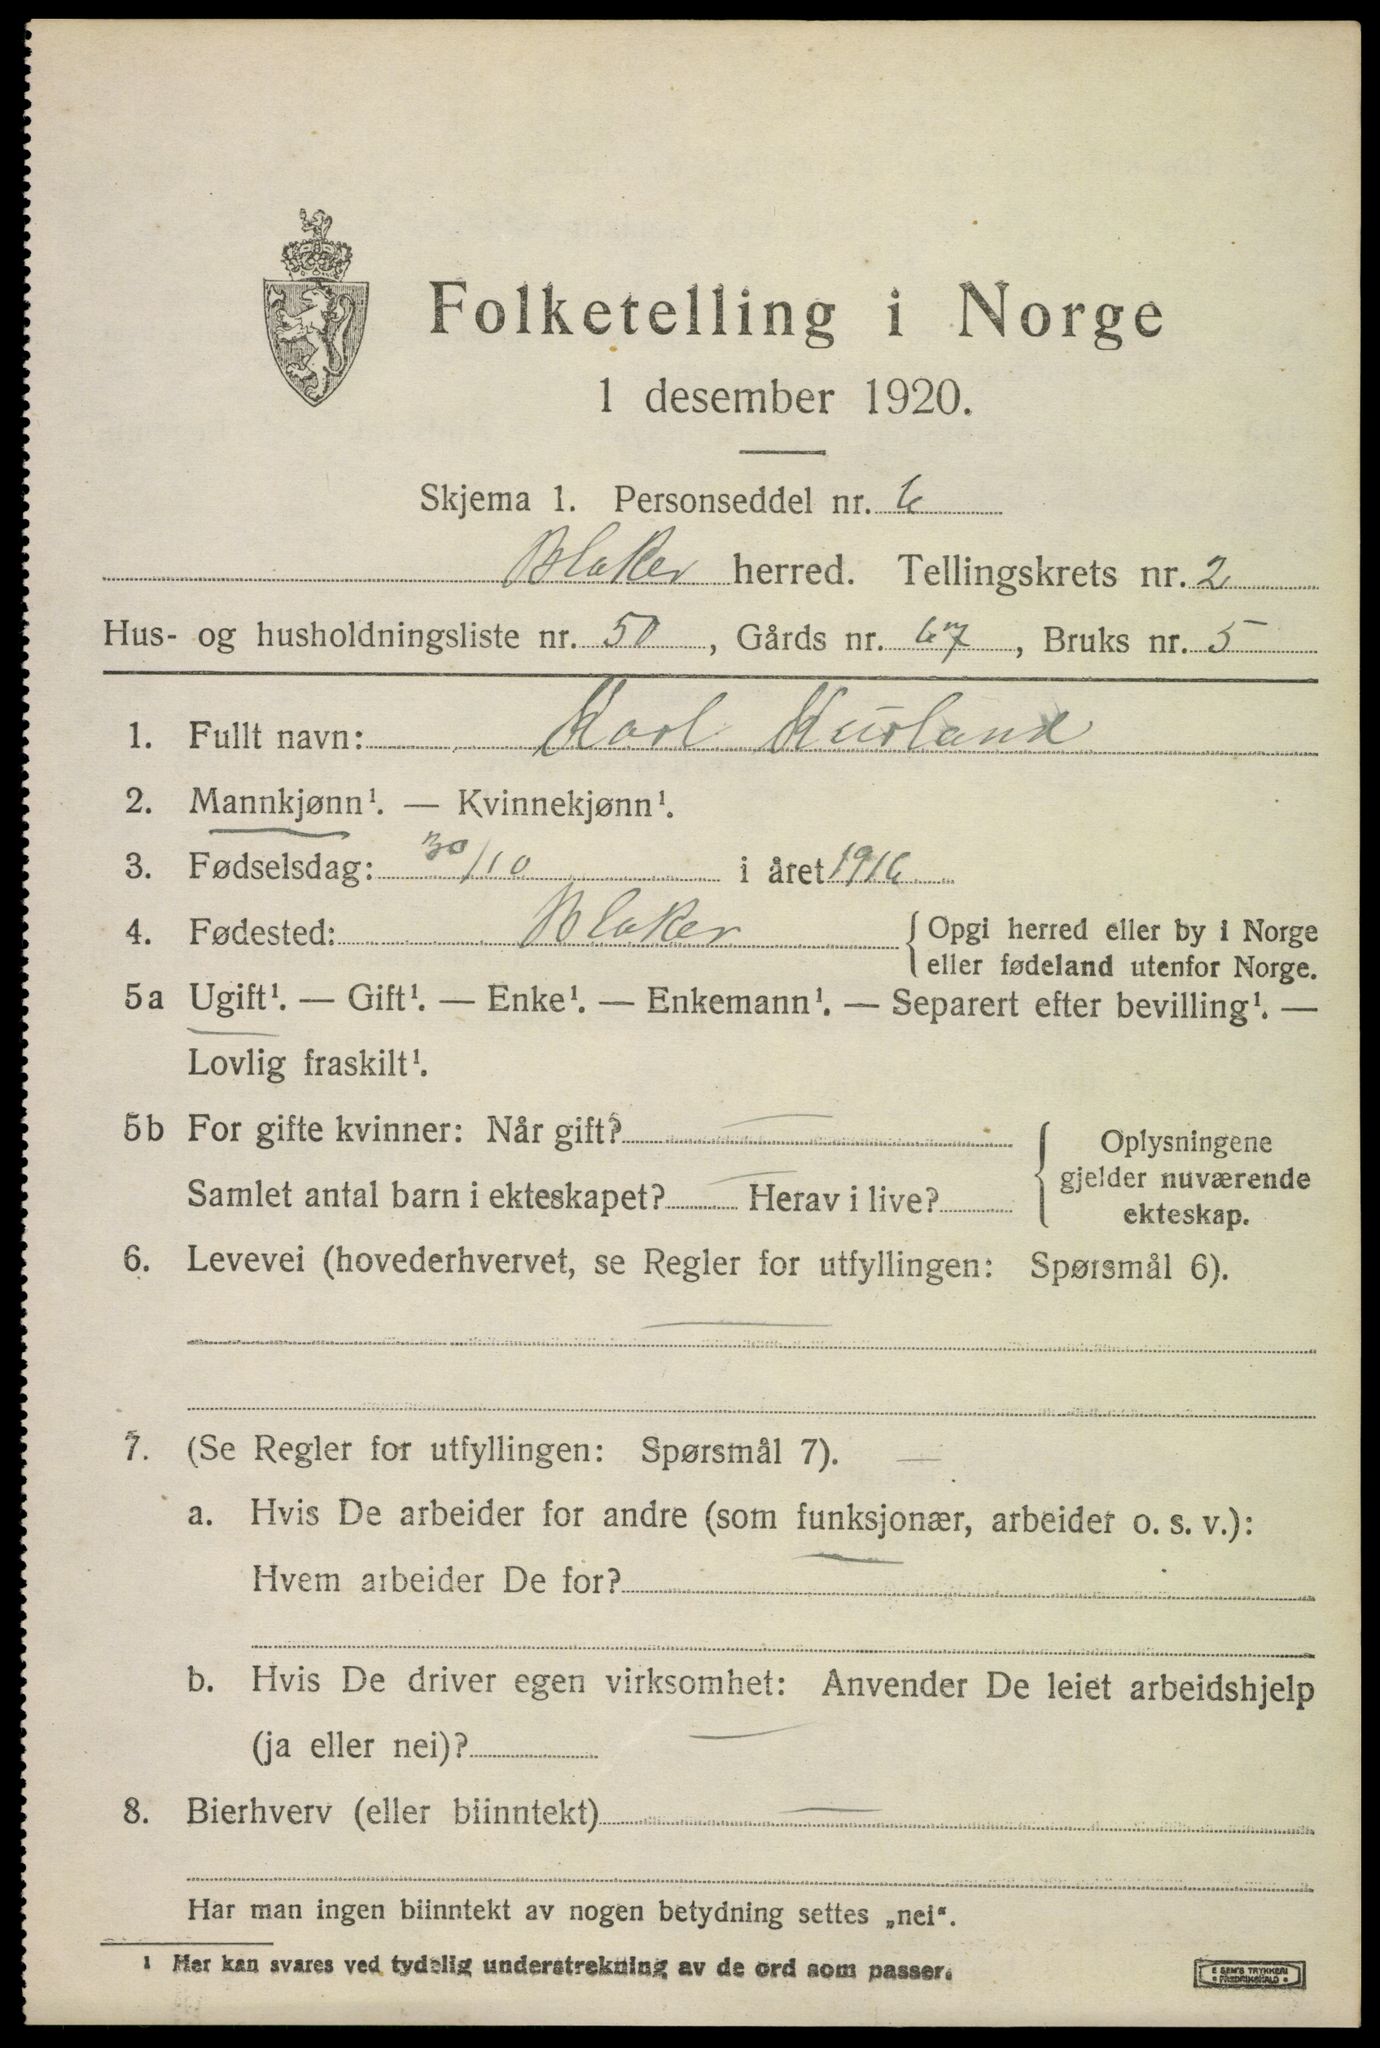 Folketelling i Norge
1 desember 1920.
Skjema 1. Personseddel nr. 6
Blaker herred. Tellingskrets nr. 2
Hus- og husholdningsliste nr. 50, Gårds nr. 67, Bruks nr. 5
1. Fullt navn: Karl Kurland
2. Mannkjønn¹. — Kvinnekjønn¹.
3. Fødselsdag: 30/10 i året 1916
4. Fødested: Blaker { Opgi herred eller by i Norge
eller fødeland utenfor Norge.
5a Ugift¹. — Gift¹. — Enke¹. — Enkemann¹. — Separert efter bevilling¹. —
Lovlig fraskilt¹.
5b For gifte kvinner: Når gift? —
Samlet antal barn i ekteskapet? — Herav i live?
{ Oplysningene
gjelder nuværende
ekteskap.
6. Levevei (hovederhvervet, se Regler for utfyllingen: Spørsmål 6).
—
7. (Se Regler for utfyllingen: Spørsmål 7). —
a. Hvis De arbeider for andre (som funksjonær, arbeider o. s. v.):
Hvem arbeider De for? —
b. Hvis De driver egen virksomhet: Anvender De leiet arbeidshjelp
(ja eller nei)? —
8. Bierhverv (eller biinntekt) —
Har man ingen biinntekt av nogen betydning settes „nei“.
¹ Her kan svares ved tydelig understrekning av de ord som passer.
E SEM'S TRYKKERI
FREDRIKSHALD